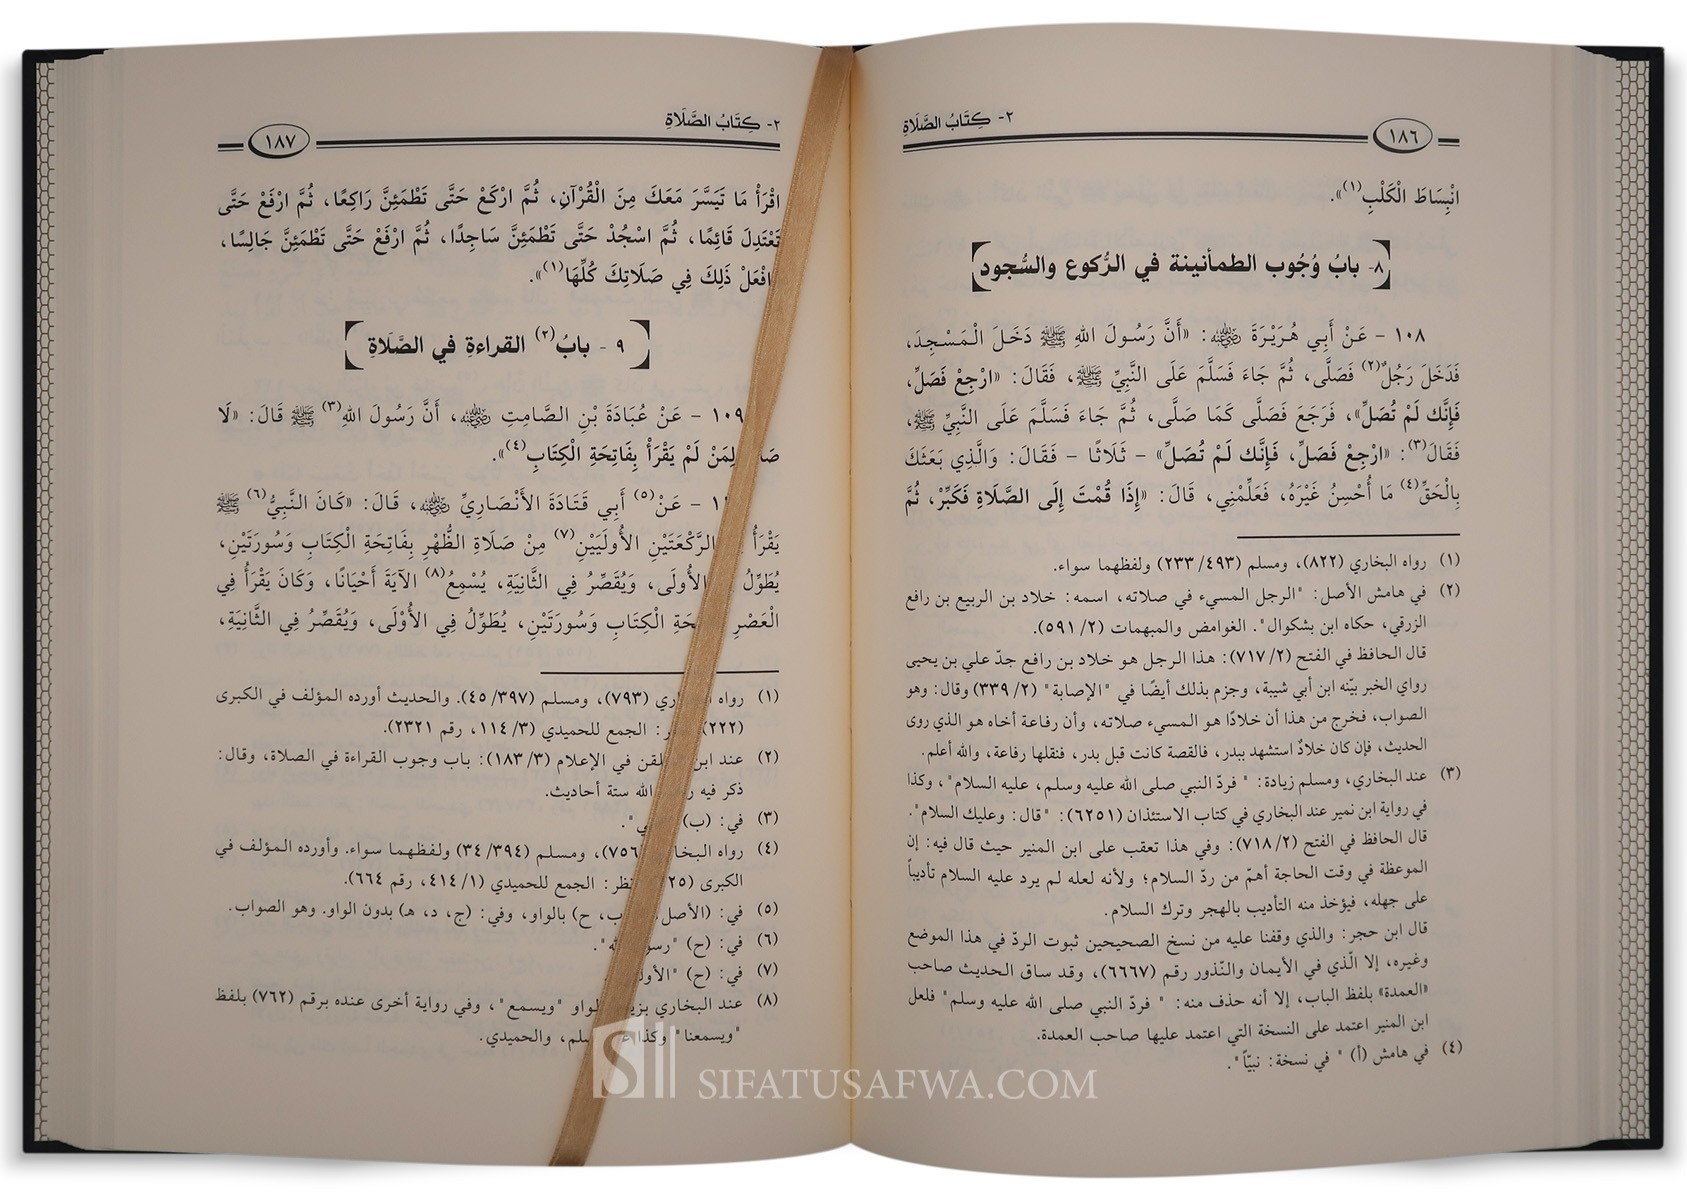 ٢- كِتَابُ الصَّلَاةِ
١٨٦
انْبِسَاطَ الْكَلْبِ(١)».
٨- بابُ وُجُوب الطمأنينة في الرُّكوع والسُّجود
١٠٨ - عَنْ أَبِي هُرَيْرَةَ ﵁: «أَنَّ رَسُولَ اللهِ ﷺ دَخَلَ الْمَسْجِدَ،
فَدَخَلَ رَجُلٌ(٢) فَصَلَّى، ثُمَّ جَاءَ فَسَلَّمَ عَلَى النَّبِيِّ ﷺ، فَقَالَ: «ارْجِعْ فَصَلِّ،
فَإِنَّك لَمْ تُصَلِّ»، فَرَجَعَ فَصَلَّى كَمَا صَلَّى، ثُمَّ جَاءَ فَسَلَّمَ عَلَى النَّبِيِّ ﷺ،
فَقَالَ(٣): «ارْجِعْ فَصَلِّ، فَإِنَّك لَمْ تُصَلِّ» - ثَلَاثًا - فَقَالَ: وَالَّذِي بَعَثَكَ
بِالْحَقِّ(٤) مَا أُحْسِنُ غَيْرَهُ، فَعَلِّمْنِي، قَالَ: «إِذَا قُمْتَ إِلَى الصَّلَاةِ فَكَبِّرْ، ثُمَّ
(١) رواه البخاري (٨٢٢)، ومسلم (٤٩٣/ ٢٣٣) ولفظهما سواء.
(٢) في هامش الأصل: "الرجل المسيء في صلاته، اسمه: خلاد بن الربيع بن رافع
الزرقي، حكاه ابن بشكوال". الغوامض والمبهمات (٢/ ٥٩١).
قال الحافظ في الفتح (٢/ ٧١٧): هذا الرجل هو خلاد بن رافع جدّ علي بن يحيى
رواي الخبر بيّنه ابن أبي شيبة، وجزم بذلك أيضًا في "الإصابة" (٢/ ٣٣٩) وقال: وهو
الصواب، فخرج من هذا أن خلادًا هو المسيء صلاته، وأن رفاعة أخاه هو الذي روى
الحديث، فإن كان خلادٌ استشهد ببدر، فالقصة كانت قبل بدر، فنقلها رفاعة، والله أعلم.
(٣) عند البخاري، ومسلم زيادة: " فردّ النبي صلى الله عليه وسلم، عليه السلام"، وكذا
في رواية ابن نمير عند البخاري في كتاب الاستئذان (٦٢٥١): "قال: وعليك السلام".
قال الحافظ في الفتح (٢/ ٧١٨): وفي هذا تعقب على ابن المنير حيث قال فيه: إن
الموعظة في وقت الحاجة أهمّ من ردّ السلام؛ ولأنه لعله لم يرد عليه السلام تأديباً
على جهله، فيؤخذ منه التأديب بالهجر وترك السلام.
قال ابن حجر: والذي وقفنا عليه من نسخ الصحيحين ثبوت الردّ في هذا الموضع
وغيره، إلا الّذي في الأيمان والنّذور رقم (٦٦٦٧)، وقد ساق الحديث صاحب
«العمدة» بلفظ الباب، إلا أنه حذف منه: " فردّ النبي صلى الله عليه وسلم" فلعل
ابن المنير اعتمد على النسخة التي اعتمد عليها صاحب العمدة.
(٤) في هامش (أ) " في نسخة: نبيّاً".
٢- كِتَابُ الصَّلَاةِ
١٨٧
اقْرَأْ مَا تَيَسَّرَ مَعَكَ مِنَ الْقُرْآنِ، ثُمَّ ارْكَعْ حَتَّى تَطْمَئِنَّ رَاكِعًا، ثُمَّ ارْفَعْ حَتَّى
تَعْتَدِلَ قَائِمًا، ثُمَّ اسْجُدْ حَتَّى تَطْمَئِنَّ سَاجِدًا، ثُمَّ ارْفَعْ حَتَّى تَطْمَئِنَّ جَالِسًا،
افْعَلْ ذَلِكَ فِي صَلَاتِكَ كُلِّهَا(١)».
٩ - بابُ(٢) القراءةِ في الصَّلَاةِ
١٠٩ - عَنْ عُبَادَةَ بْنِ الصَّامِتِ ﵁، أَنَّ رَسُولَ اللهِ(٣) ﷺ قَالَ: «لَا
لِمَنْ لَمْ يَقْرَأْ بِفَاتِحَةِ الْكِتَابِ(٤)».
- عَنْ(٥) أَبِي قَتَادَةَ الأَنْصَارِيِّ ﵁، قَالَ: «كَانَ النَّبِيُّ(٦) ﷺ
يَقْرَأُ الرَّكْعَتَيْنِ الأُولَيَيْنِ(٧) مِنْ صَلَاةِ الظُّهْرِ بِفَاتِحَةِ الْكِتَابِ وَسُورَتَيْنِ،
يُطَوِّلُ الأُولَى، وَيُقَصِّرُ فِي الثَّانِيَةِ، يُسْمِعُ(٨) الآيَةَ أَحْيَانًا، وَكَانَ يَقْرَأُ فِي
الْعَصْرِ الْكِتَابِ وَسُورَتَيْنِ، يُطَوِّلُ فِي الأُوْلَى، وَيُقَصِّرُ فِي الثَّانِيَةِ،
(١) رواه (٧٩٣)، ومسلم (٣٩٧/ ٤٥). والحديث أورده المؤلف في الكبرى
(٢٢٢) : الجمع للحميدي (٣/ ١١٤، رقم ٢٣٢١).
(٢) عند ابن في الإعلام (٣/ ١٨٣): باب وجوب القراءة في الصلاة، وقال:
ذكر فيه الله ستة أحاديث.
(٣) في: (ب)
(٤) رواه ومسلم (٣٩٤/ ٣٤) ولفظهما سواء. وأورده المؤلف في
الكبرى : الجمع للحميدي (١/ ٤١٤، رقم ٦٦٤).
(٥) في: (الأصل، ب، ح) بالواو، وفي: (ج، د، هـ) بدون الواو. وهو الصواب.
(٦) في: (ح)
(٧) في: (ح)
(٨) عند البخاري الواو "ويسمع"، وفي رواية أخرى عنده برقم (٧٦٢) بلفظ
"ويسمعنا" وكذا والحميدي.
SIFATUSAFWA.COM